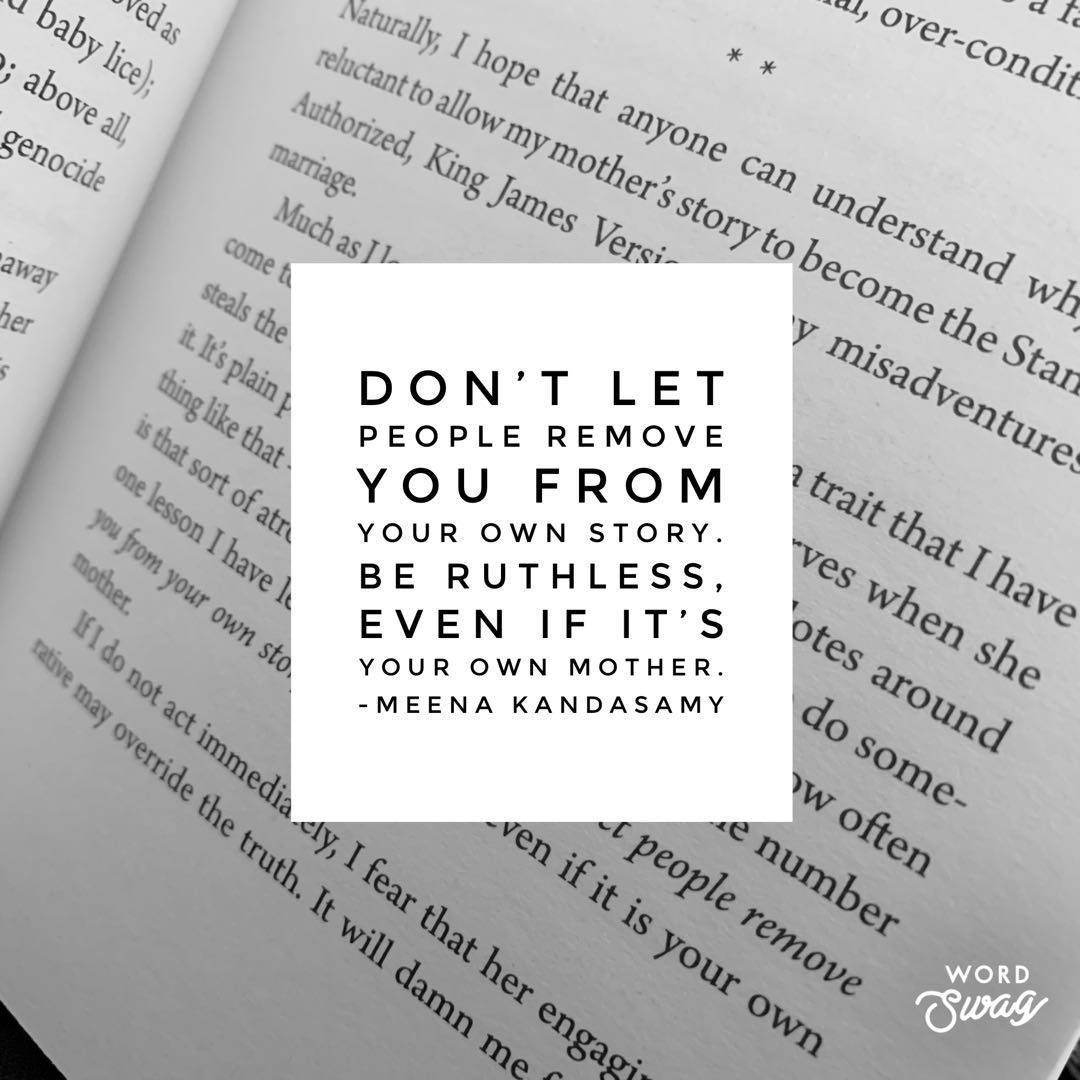 oved as
d baby lice);
; above all,
genocide
away
her
s
s a fa
al, over-condit
* *
Naturally, I hope that anyone can understand why
reluctant to allow my mother's story to become the Stan
Authorized, King James Versio
y misadventures
marriage.
Much as I lo
a trait that I have
come t
rves when she
steals the
otes around
it. It's plain p
do some-
thing like that -
ow often
is that sort of atro
he number
one lesson I have le
et people remove
you from your own sto
even if it is your own
mother.
If I do not act immediately, I fear that her engagin
rative may override the truth. It will damn me f
DON'T LET
PEOPLE REMOVE
YOU FROM
YOUR OWN STORY.
BE RUTHLESS,
EVEN IF IT'S
YOUR OWN MOTHER.
-MEENA KANDASAMY
WORD
Swag